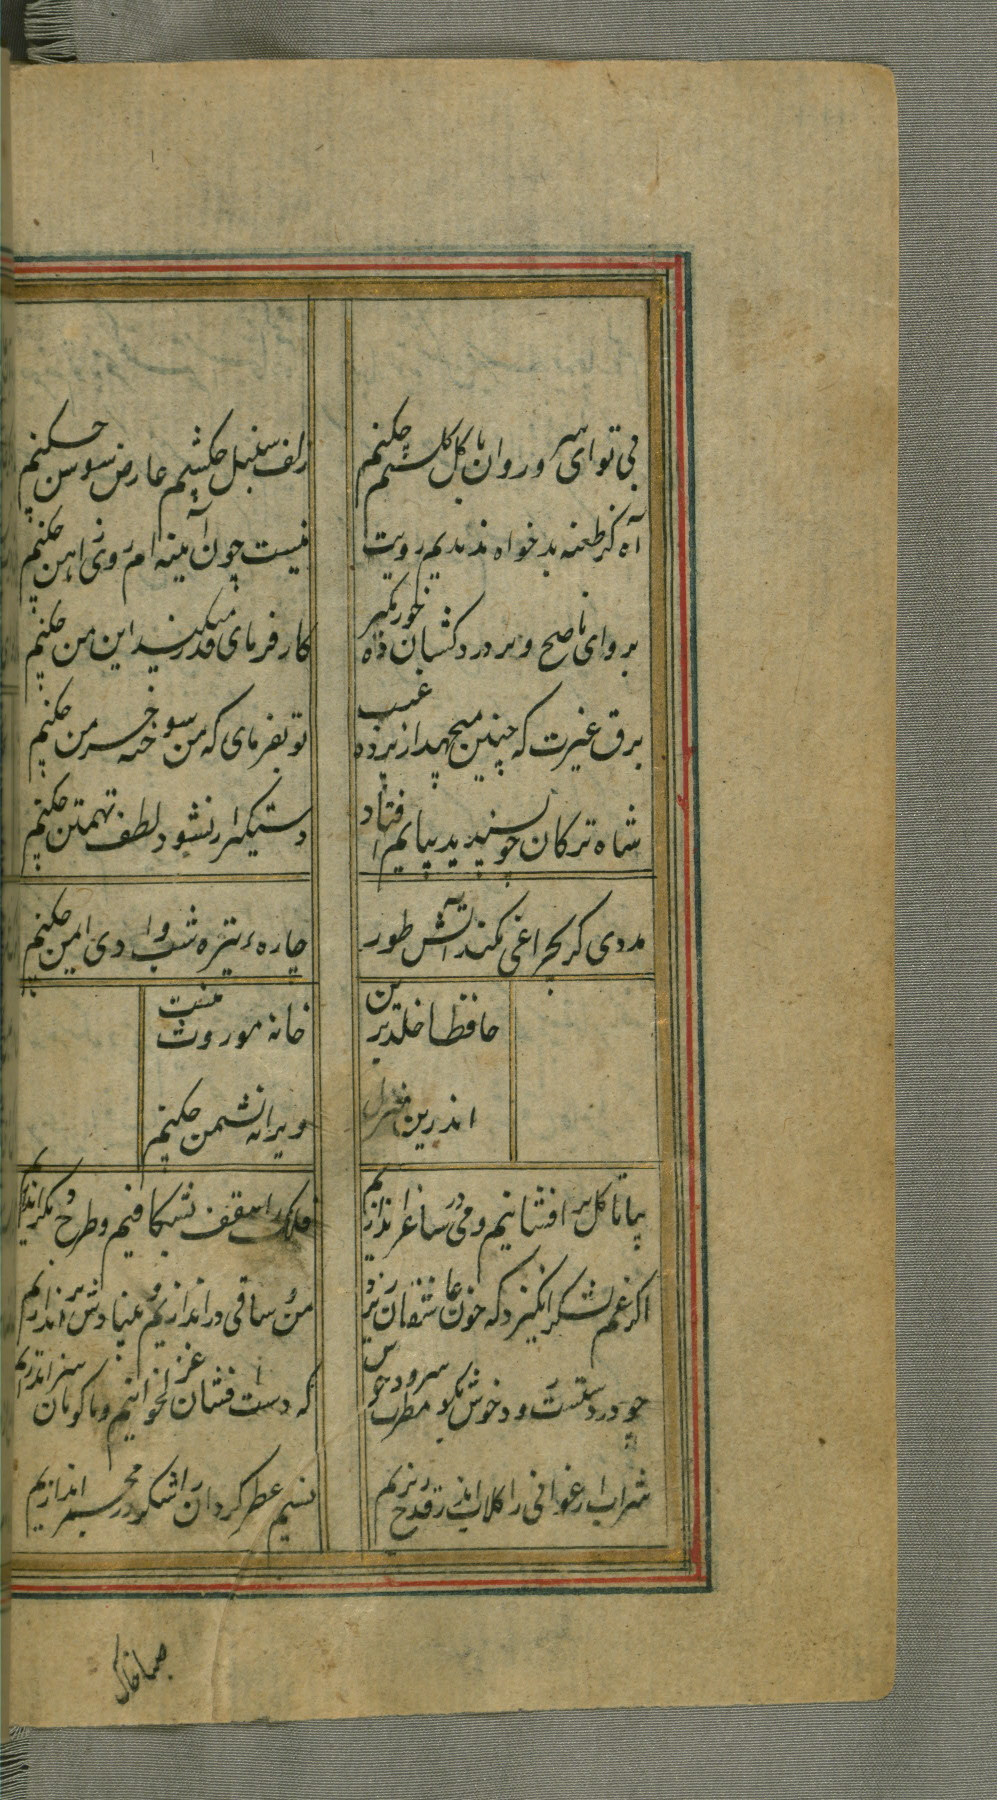 بی تو ای سرو روان با گل و گلشن چکنم
زلف سنبل چکشم عارض سوسن چکنم
آه کز طعنه بدخواه ندیدیم رویت
نیست چون آینه ام روی ز اهن چکنم
برو ای ناصح و بر دردکشان خورده مگیر
کارفرمای قدر میکند این من چکنم
برق غیرت که چنین میجهد از پرده غیب
تو بفرمای که من سوخته خرمن چکنم
شاه ترکان چو پسندید بپایم افتاد
دستگیر ار نشود لطف تهمتن چکنم
مددی گر بچراغی نکند آتش طور
چاره تیره شب وادی ایمن چکنم
حافظا خلد برین
خانه موروث منست
اندرین منزل
ویرانه نشیمن چکنم
بیا تا گل بر افشانیم و می در ساغر اندازیم
فلک را سقف بشکافیم و طرح دیگر اندازیم
اگر غم لشکر انگیزد که خون عاشقان ریزد
من و ساقی در اندازیم و بنیادش بر اندازیم
چو در دستست رود خوش بگو مطرب سرود خوش
که دست افشان غزل خوانیم و پاکوبان سر اندازیم
شراب ارغوانی را گلاب اندر قدح ریزیم
نسیم عطر گردان را شکر در مجمر اندازیم
صبا خاک